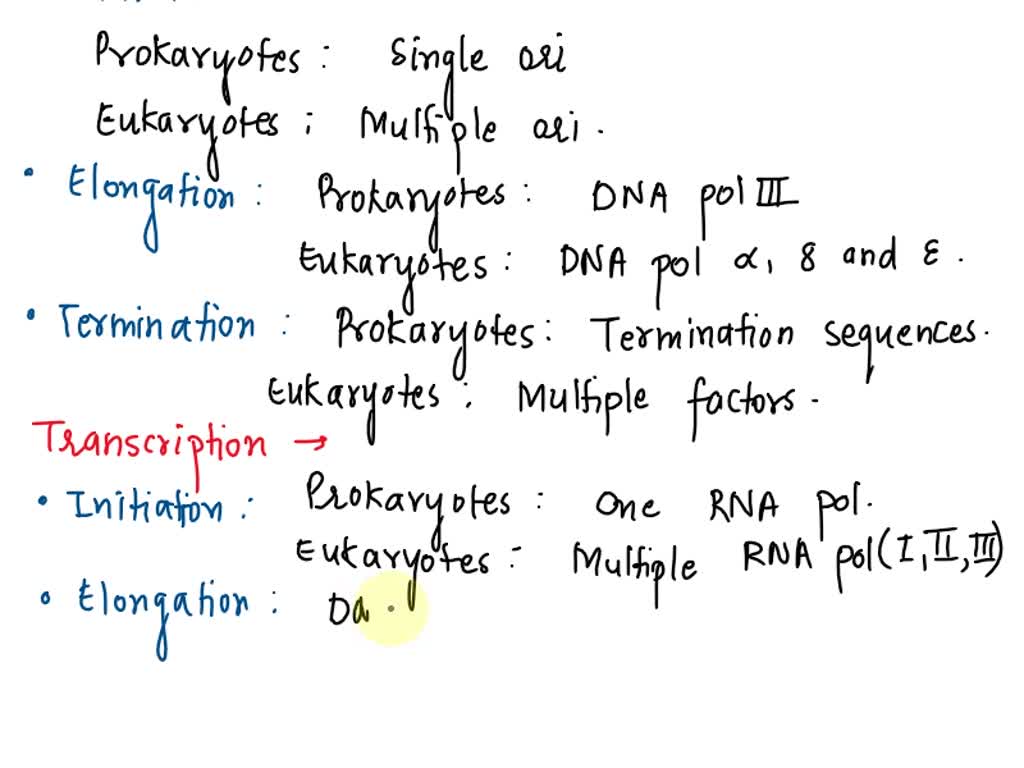 Prokaryotes : Single ori
Eukaryotes : Multiple ori.
• Elongation : Prokaryotes : DNA pol III
Eukaryotes : DNA pol α, δ and ε.
• Termination : Prokaryotes : Termination sequences.
Eukaryotes : Multiple factors.
Transcription →
• Initiation : Prokaryotes : One RNA pol.
Eukaryotes : Multiple RNA pol (I, II, III)
• Elongation : Da